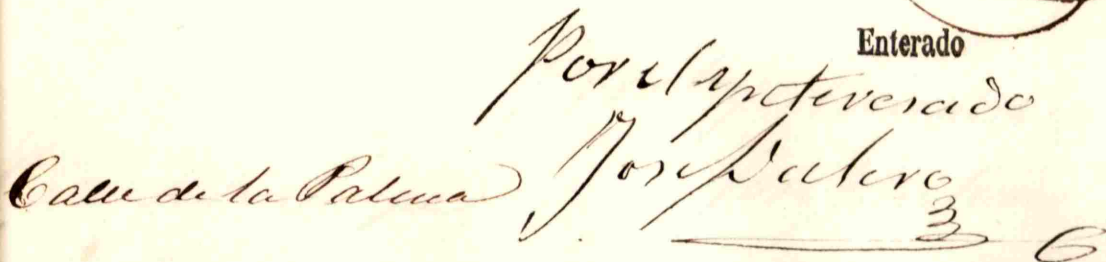 Enterado
Por el ynteresado
José Valero
Calle de la Palma